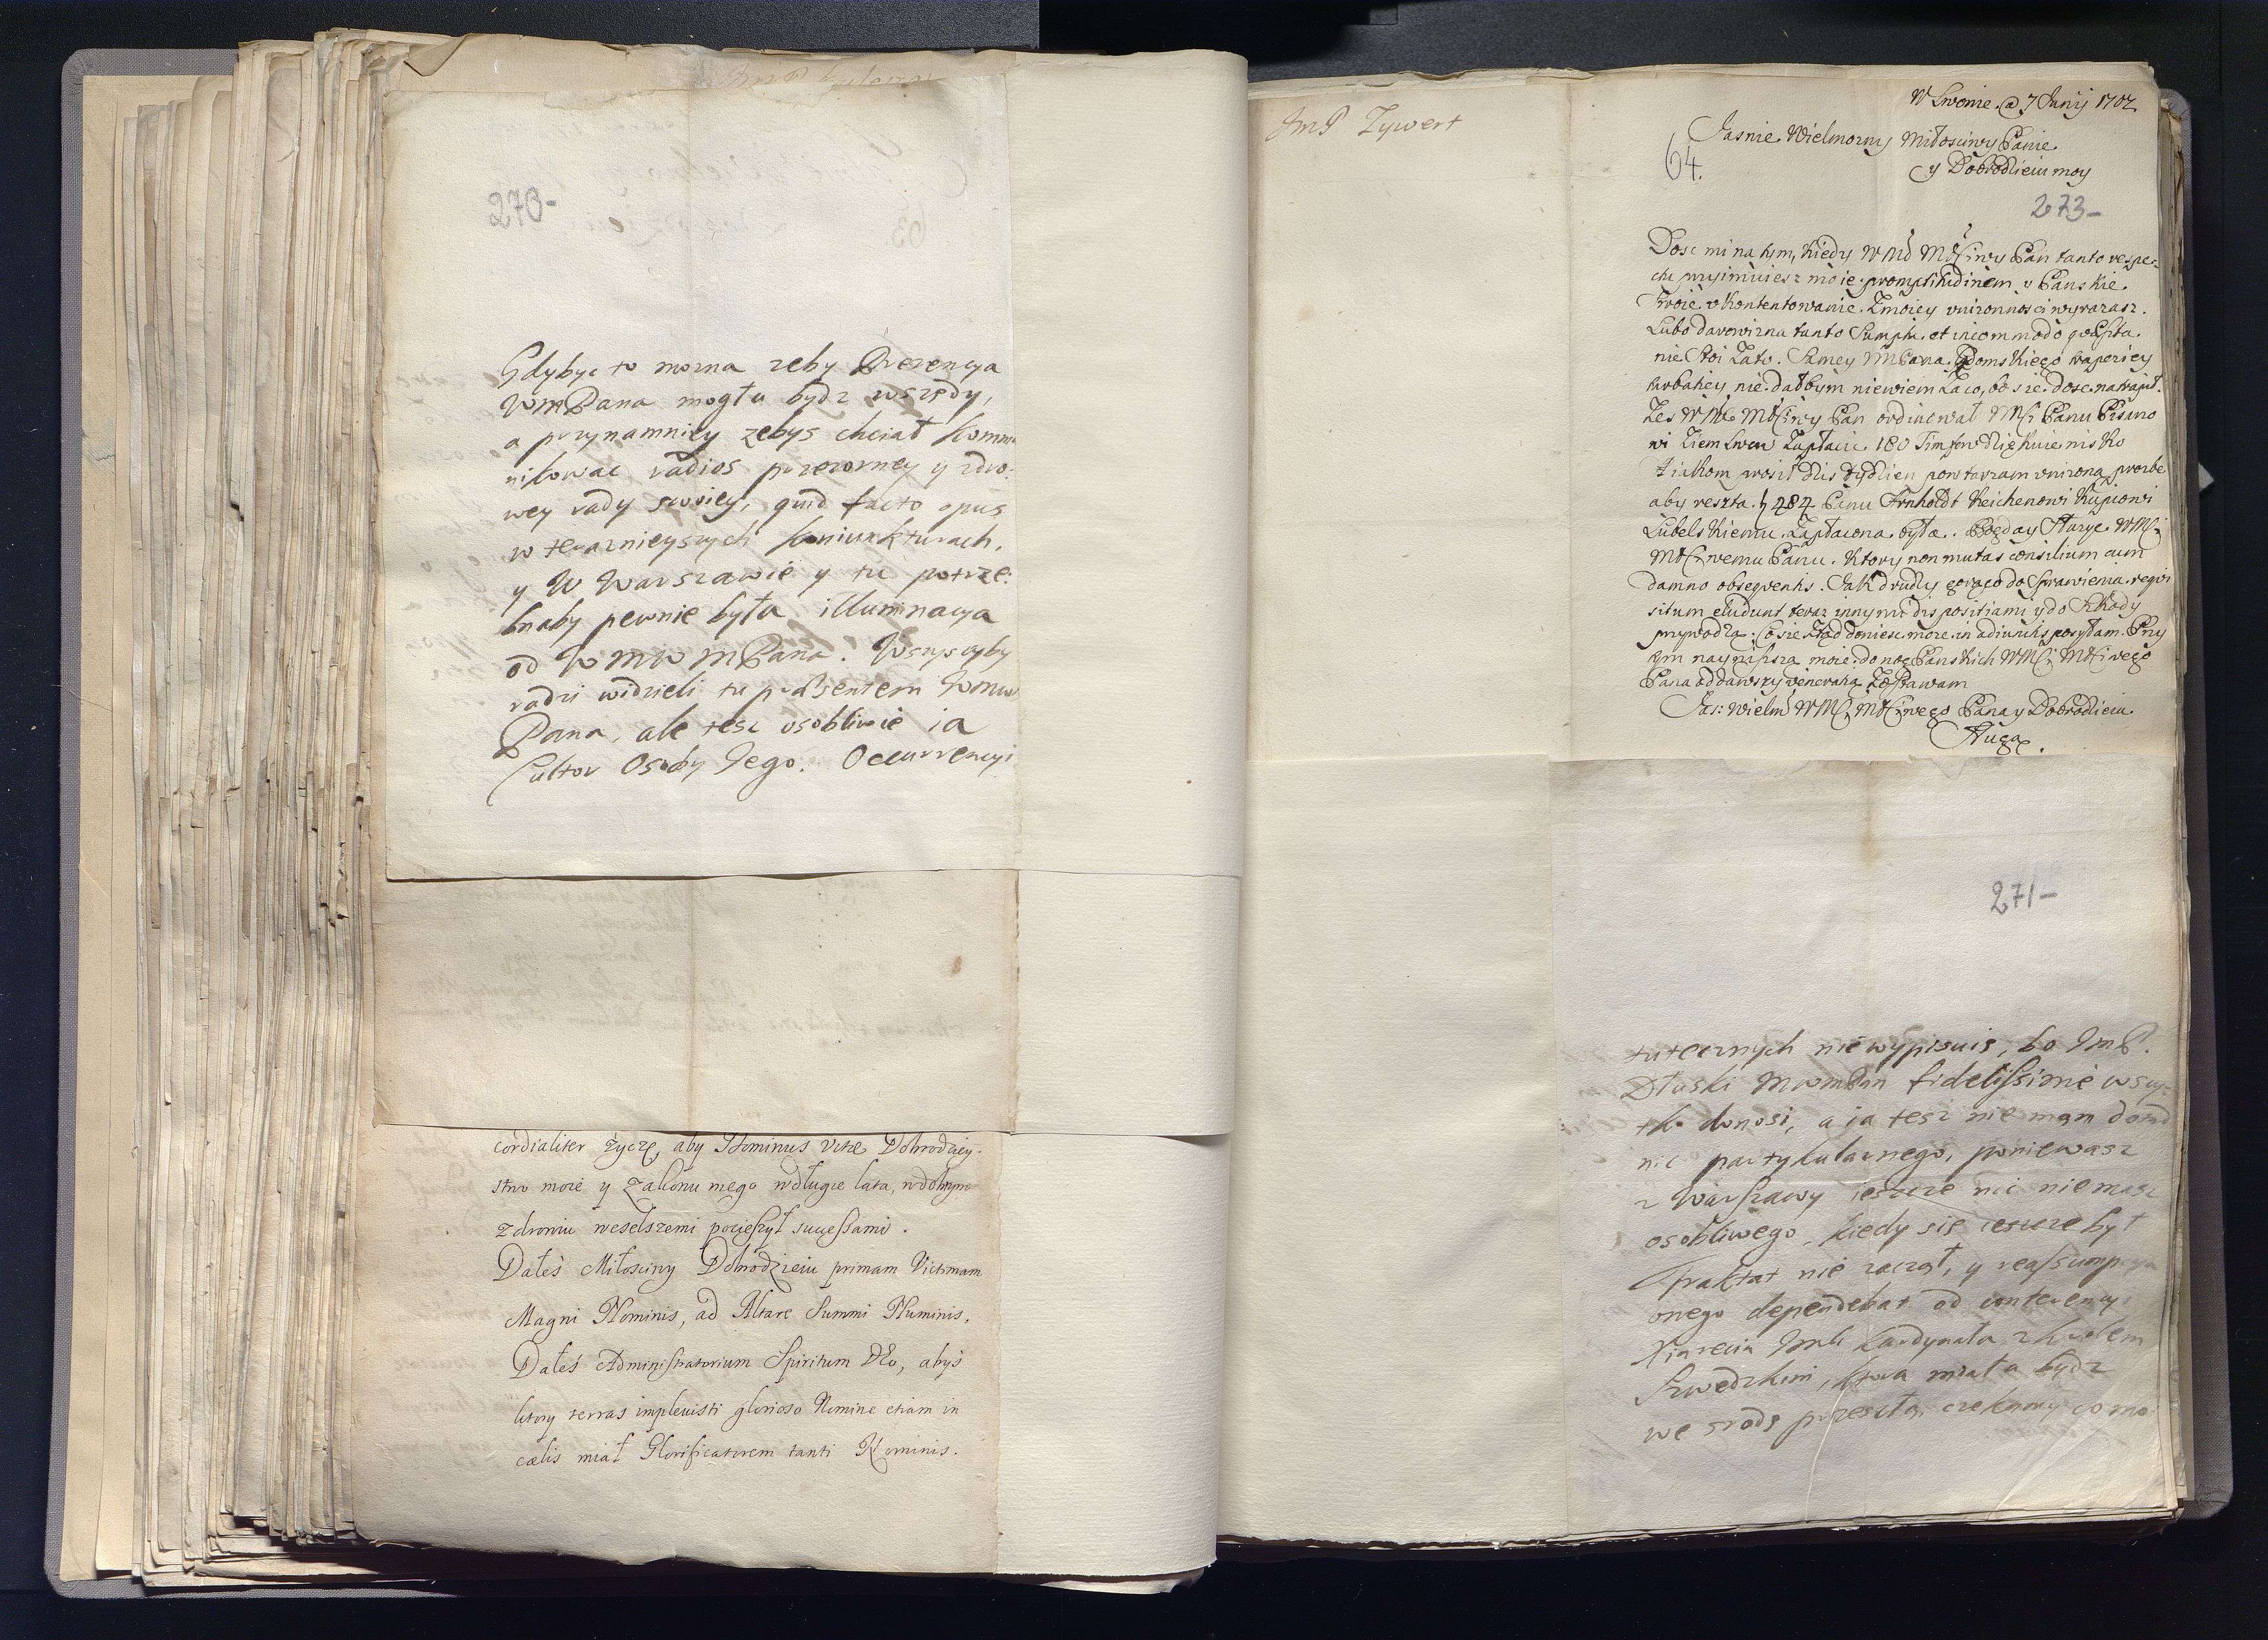 270-
Gdybyc to mozna zeby Prezencya
WMPana mogła bydz wszędy,
a przynamniey zebys chciał kommu
nikowac radios przezorney y zdro:
wey rady swoiey, quid facto opus
w teraznieyszych koniunkturach,
y W Warszawie y tu potrze:
bnaby pewnie była illuminacya
od WMW MPana. Wszyscyby
radzi widzieli tu präsentem WMW
Pana, ale tesz osobliwie ia
Cultor Osoby Jego. Occurrencyi
cordialiter życzę, aby Dominus vitæ Dobrodziey-
stwo moie y Zakonu mego w długie lata, w dobrym
zdrowiu weselszemi pocieszył successami.
Dałeś Miłosciwy Dobrodzieiu primam Victimam
Magni Nominis, ad Altare Summi Numinis.
Dałeś Administratorium Spiritum DEo, abyś
ktory terras implevisti glorioso Nomine etiam in
cælis miał Glorificatorem tanti Nominis.
JmP Zywert
W Lwowie @ 7 Junij 1702
Jasnie Wielmozny Miłosciwy Panie
y Dobrodzieiu moy
64.
273-
Dosc mi na tym, kiedy WMć MMściwy Pan tanto respe-
ctu przyimuiesz moie promptitudinem y Panskie
Swoie vkontentowanie z moiey vniżonnosci wyrazasz.
Lubo darowizna tanto Sumptu et incommodo
nie stoi zato. Samey MPana
nie dałbym niewiem za co, bo sie dosc natrapił.
Zes WMć MMściwy Pan ordinował MCi Panu Pisarzo
wi Ziem Lwow Zapłacic 180 Timfow dziękuie nisko
Z iakom prosił dis tydzien powtarzam vnizoną prozbe
aby reszta 484 Panu Arnholdt Reichenowi Kupcowi
Lubelskiemu zapłacona była. Bog day Sturze WMCi
MMściwemu Panu. Ktory non mutas consilium cum
damno obsequentis. Jak drudzy gorąco do sprawienia requi
situm eludunt teraz innymi dispositiami y do szkody
przywodzą. Co sie ztąd doniesc moze in adiunctis posyłam. Przy
tym nayniszszą moie do nog Panskich WMCi MMściwego
Pana oddawszy veneratią Zostawam
Jas: Wielm WMCi MMściwego Pana y Dobrodzieia
Sługa.
271-
tutecznych niewypisuię, bo JmP.
Dłuski MWMPan fidelissime wszy-
tko donosi, a ia tesz nie mam donieść
nic partykularnego, poniewasz
z Warszawy ieszcze nic niemasz
osobliwego, kiedy się ieszcze był
Traktat nie zaczął, y reassumpcya
onego dependebat od conferencyi
Xiazecia Jmci Kardynała z krolem
Szwedzkim, ktora miała bydz
we srodę przeszłą, czekamy co mo